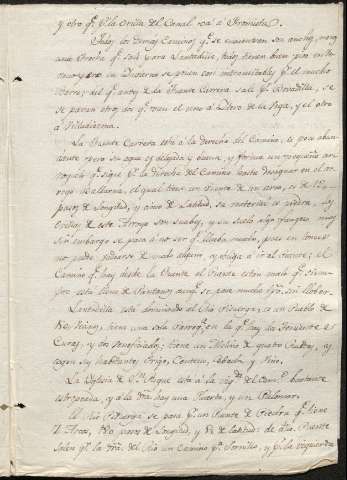 y otro qᵉ pʳ la Orilla del Canal va á Fromista.
Todos los demas Caminos qᵉ se encuentran son anchos, menos
una Trocha qᵉ sale para Lantadilla, bien en
pero en Invierno se ponen con intransitables pʳ el mucho
Barro; del qᵉ antes de la Puente Carrera sale pᵃ Bovadilla, se
separan otros dos qᵉ van el uno á Itero de la Vega, y el otro
á Villadiezma.
La Puente Carrera está á la derecha del Camino, es poco abun-
dante pero su agua es delgada y buena, y forma un pequeño ar-
royuelo qᵉ sigue pʳ la derecha del Camino hasta desaguar en el ar-
royo Vallarna, el qual tiene un Puente de un arco, es de 12
pasos de longitud, y cinco de Latitud, su material es piedra, las
orillas de este Arroyo son suabes, y su suelo algo fangoso, mas
sin embargo se pasa á no ser qᵉ lleba mucho, pues en tonces
no puede pasarse de modo alguno, y obliga á ir al Puente; el
Camino qᵉ hay desde la Puente al Puente está malo pʳ
esta lleno de Pantanos aunqᵉ se pase mucho tpo. sin llober.
Lantadilla esta dominado del Rio Pisuerga, es un Pueblo de
Vecinos, tiene una sola Parroqᵃ en la qᵉ hay
Curas, y dos beneficiados; tiene un Molino de quatro Ruedas, y
cogen sus habitantes Trigo, Centeno, Cebada y Vino.
La Yglesia de Sⁿ Roque está á la del Camᵒ bastante
estropeada, y á la dra. hay una Huerta, y un Palomar.
El Rio Pisuerga se pasa pʳ un Puente de Piedra qᵉ tiene
Arcos, pasos de Longitud, y de latitud: de dho. Puente
salen pʳ la dra. del Rio un Camino pᵃ Sornillo, y pʳ la izquierda